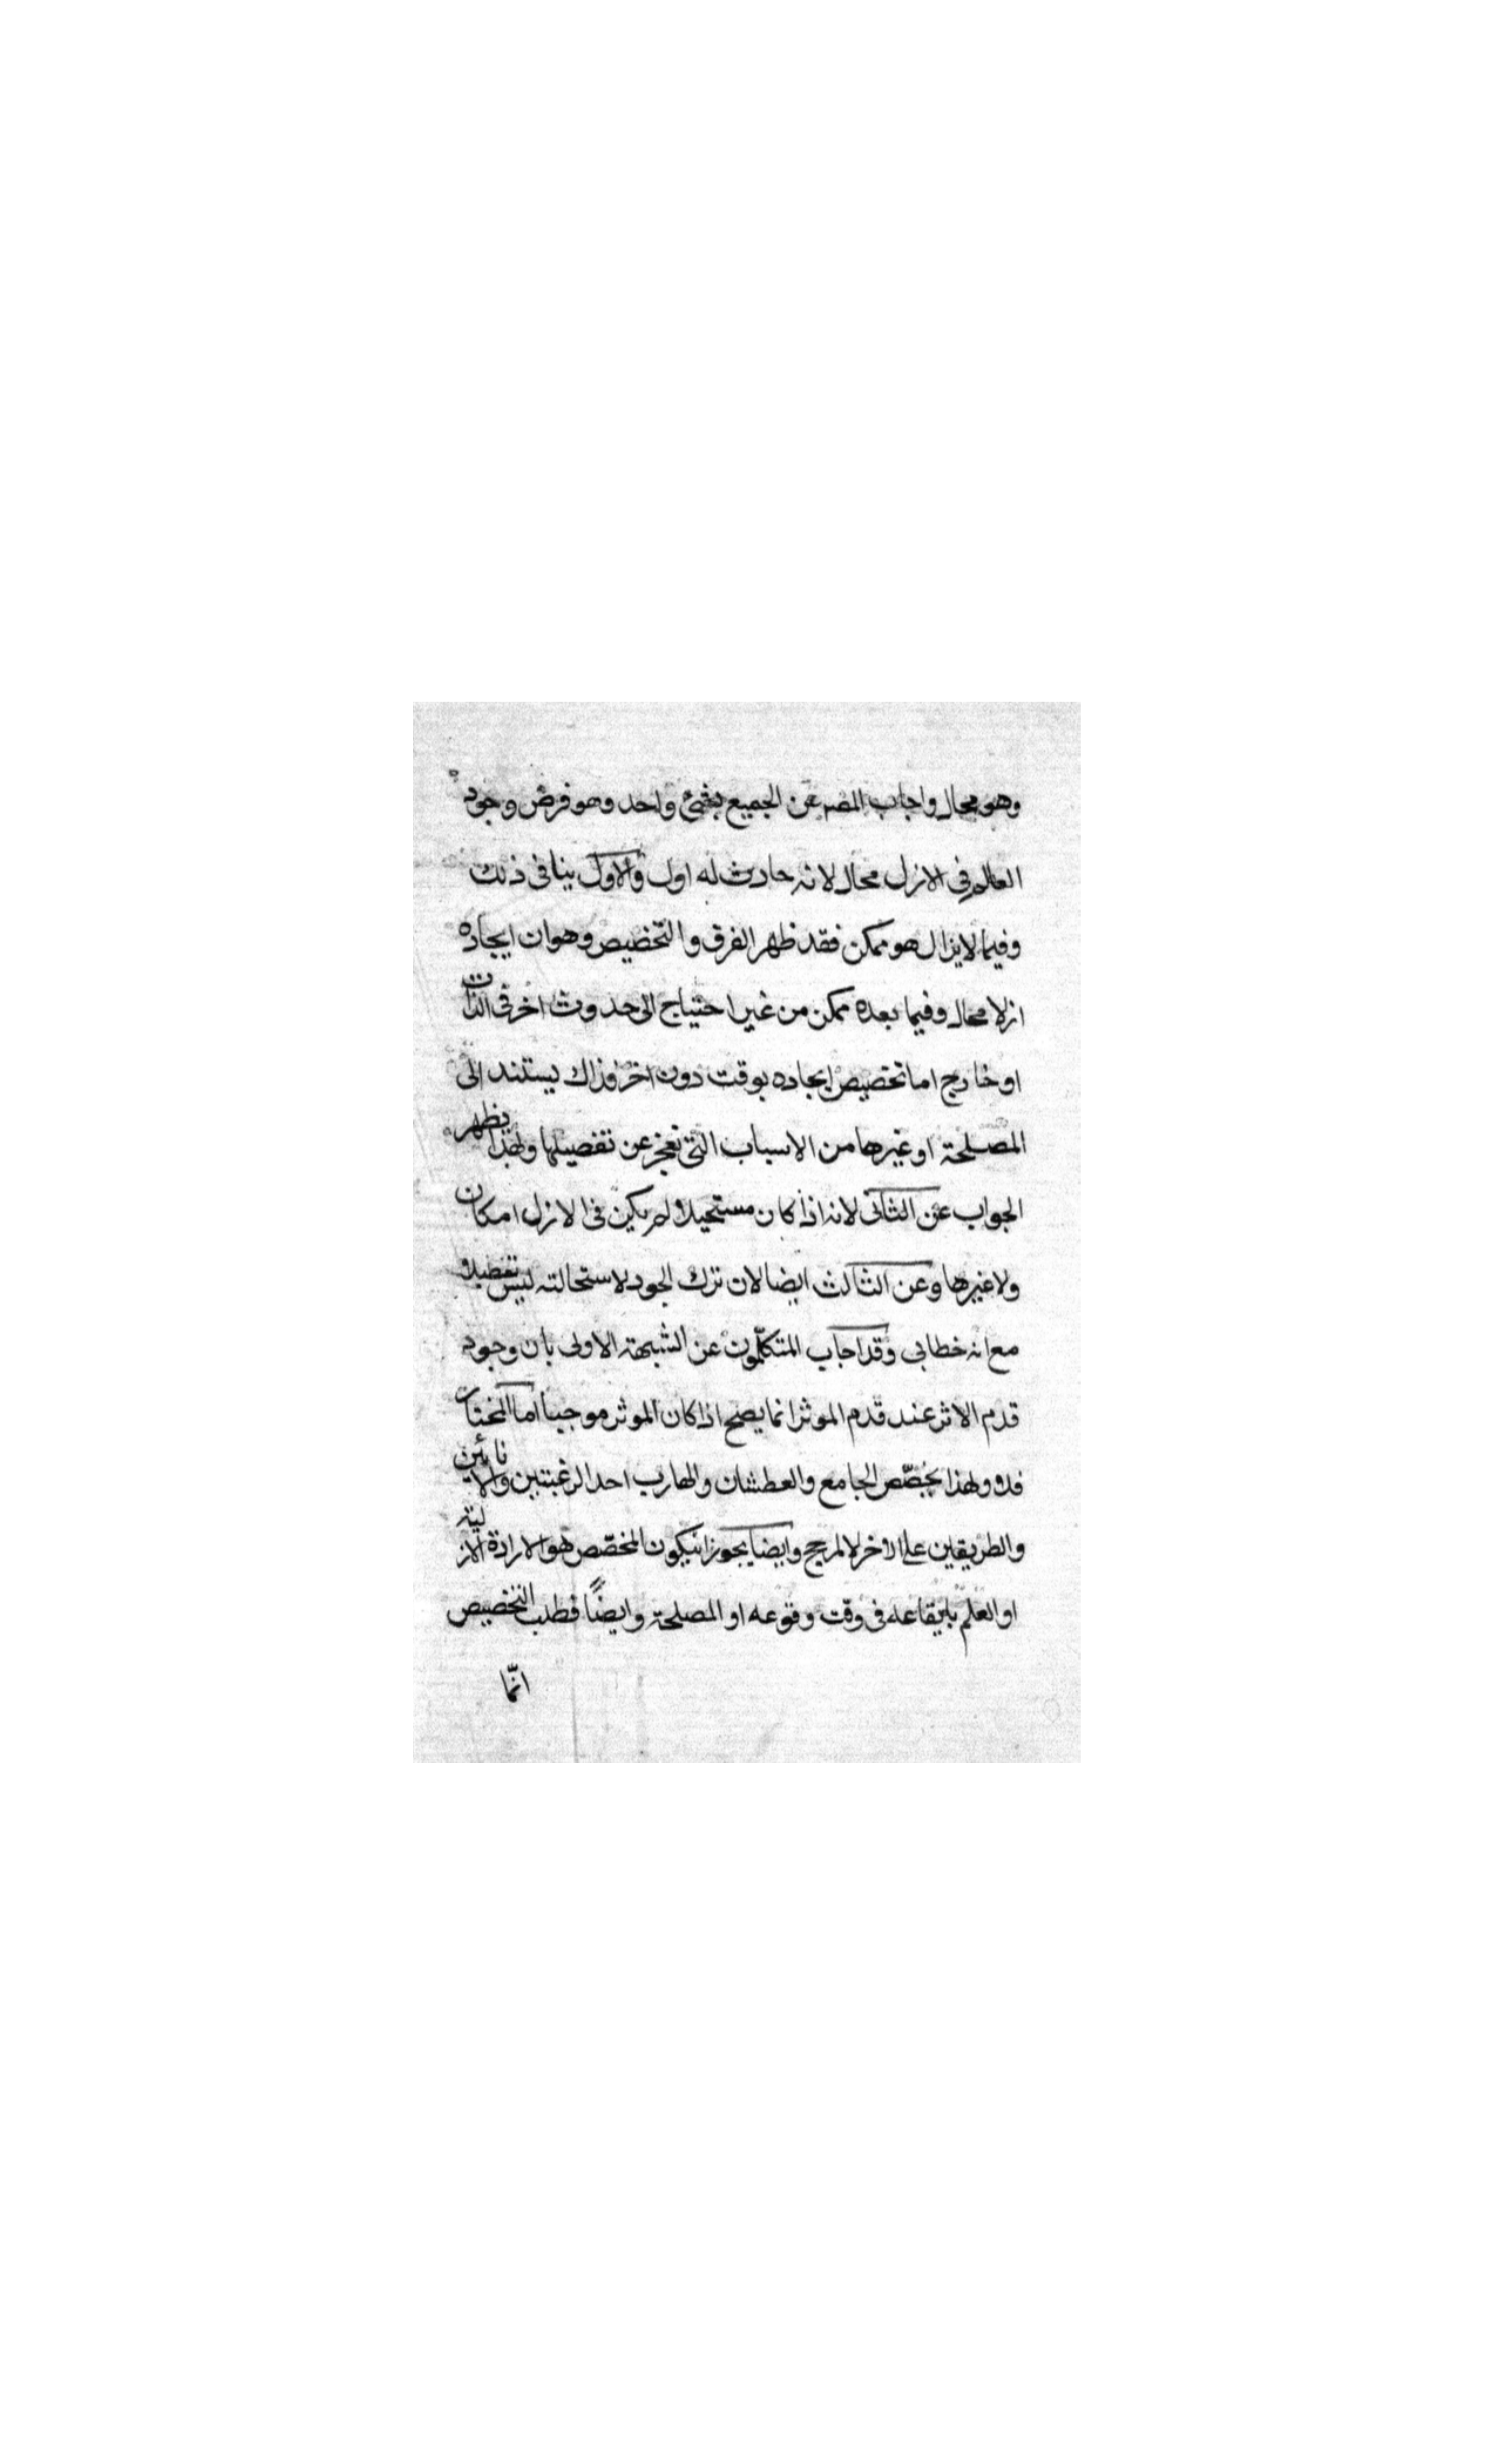 وهو محال واجاب المصه عن الجميع بشئ واحد وهو فرض وجود
العالم فى الازل محال لانه حادث له اول والاول ينافى ذلك
وفيما لايزال هو ممكن فقد ظهر الفرق والتخصيص وهو ان ايجاده
ازلا محال وفيما بعده ممكن من غير احتياج الى حدوث اخر فى الذات
او خارج اما تخصيص ايجاده بوقت دون اخر فذاك يستند الى
المصلحة او غيرها من الاسباب التى نعجز عن تفصيلها ولهذا يظهر
الجواب عن الثانى لانه اذا كان مستحيلا لم يكن فى الازل امكان
ولا غيرها وعن الثالث ايضا لان ترك الجود لاستحالته ليس
مع انه خطابى وقد اجاب المتكلّمون عن الشبهة الاولى بان وجود
قدم الاثر عند قدم الموثر انما يصح اذا كان الموثر موجبا اما المختار
فلا ولهذا يخصّص الجامع والعطشان والهارب احد الرغبتين والانائين
والطريقين على الاخر لا لمرجح وايضا يجوز انيكون المخصّص هو الارادة الازلية
او العلم بايقاعه فى وقت وقوعه او المصلحة وايضًا فطلب التخصيص
انّما